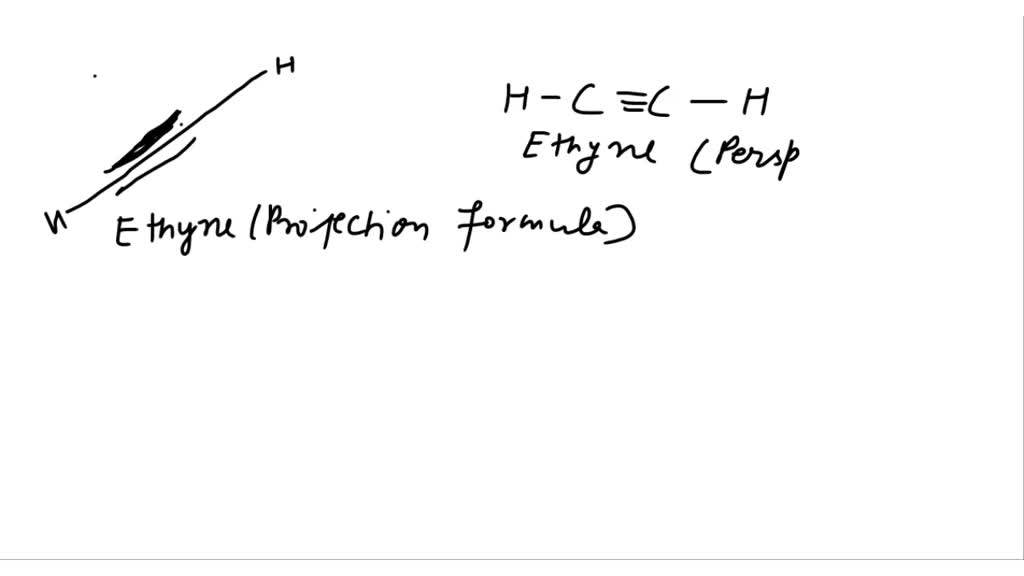 H
H - C ≡ C - H
Ethyne (Persp
H
Ethyne (Projection formula)